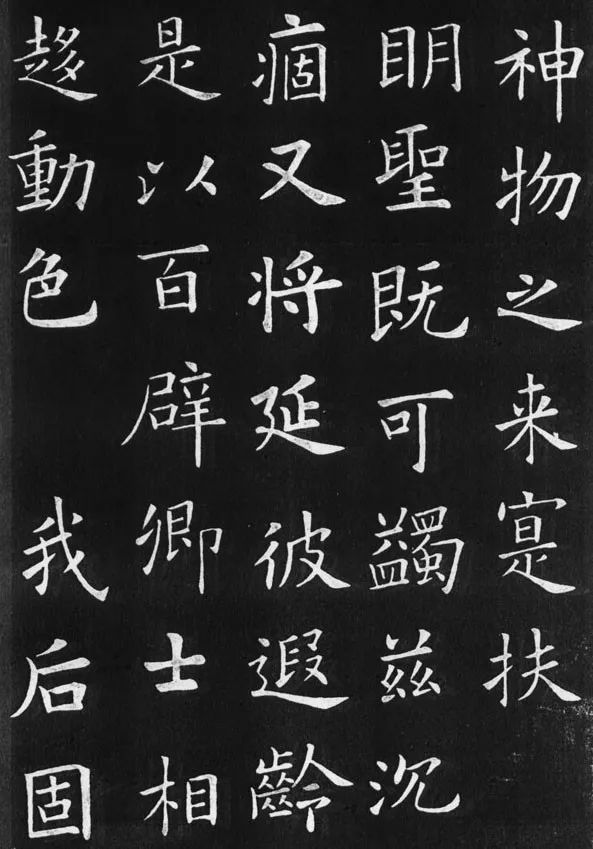 神物之来寔扶
眀聖既可蠲兹沉
痼又将延彼遐齡
是以百辟卿士相
趍動色 我后固